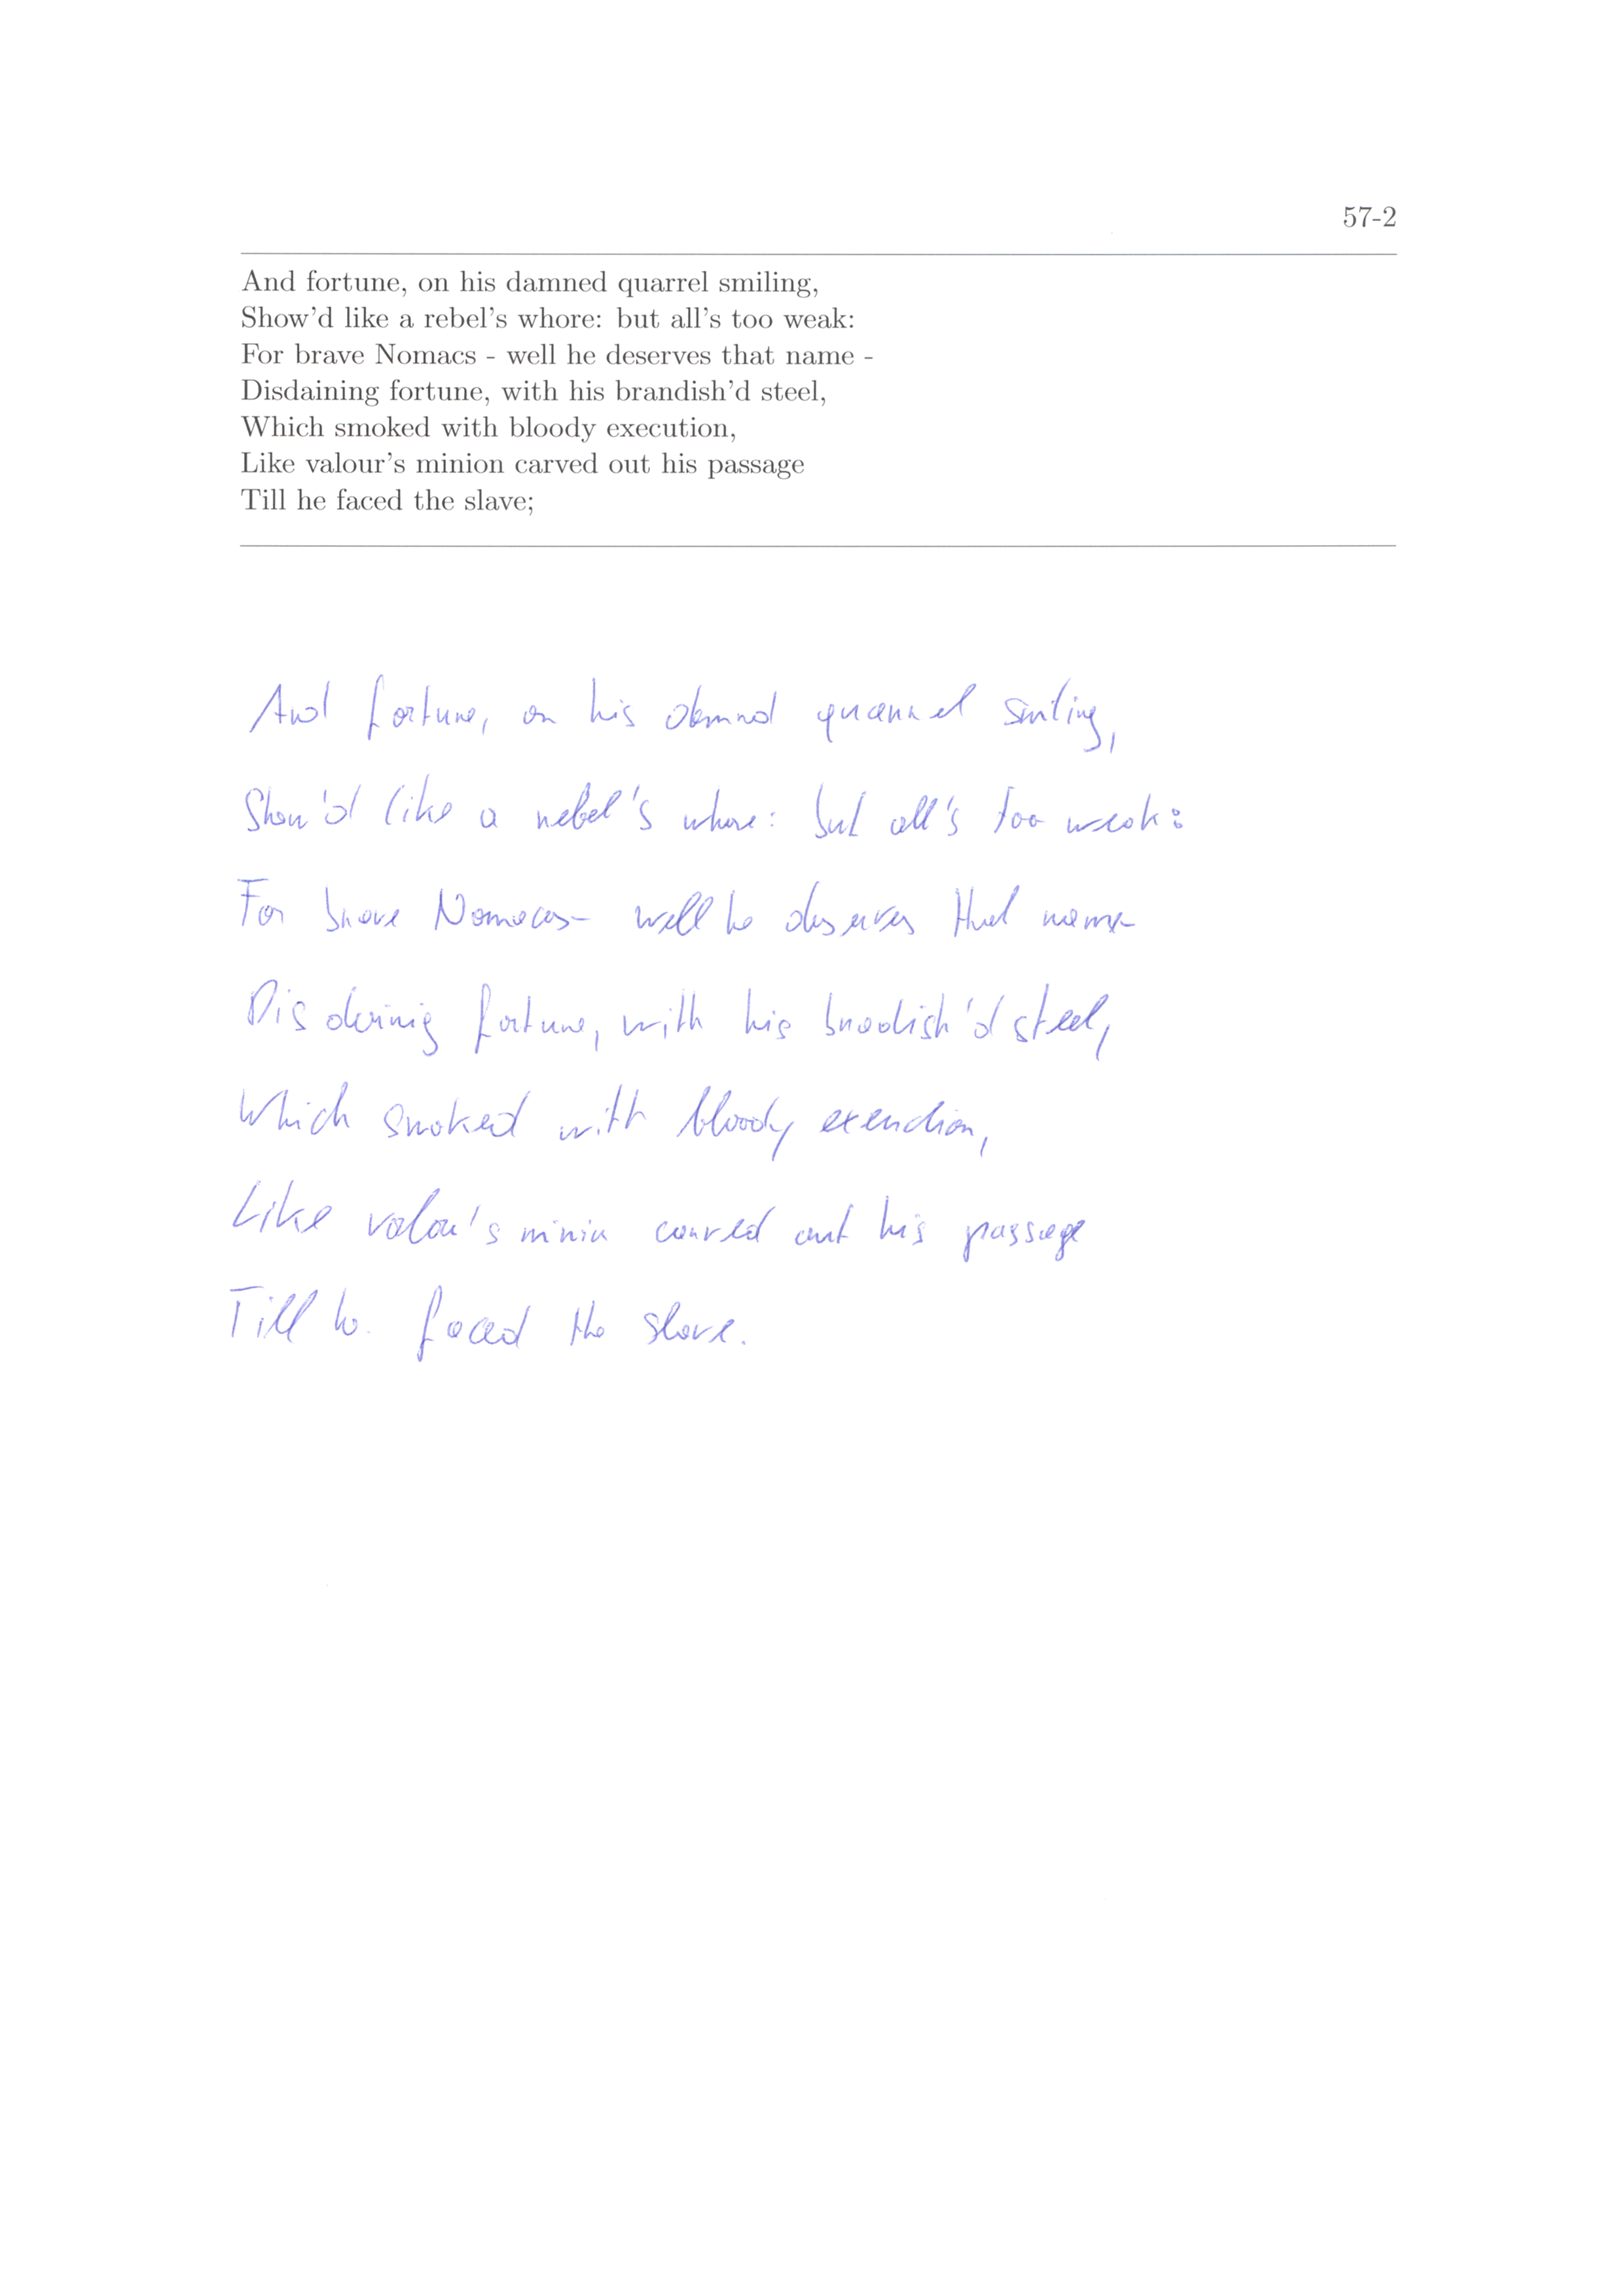 57-2
And fortune, on his damned quarrel smiling,
Show'd like a rebel's whore: but all's too weak:
For brave Nomacs - well he deserves that name -
Disdaining fortune, with his brandish'd steel,
Which smoked with bloody execution,
Like valour's minion carved out his passage
Till he faced the slave;
And fortune, on his damnd quarrel smiling,
Show'd like a rebel's whore: but all's too weak:
For brave Nomacs- well he deserves that name-
Disdaining fortune, with his bradish'd steel,
Which smoked with bloody execution,
Like valour's minion carved out his passage
Till he faced the slave.